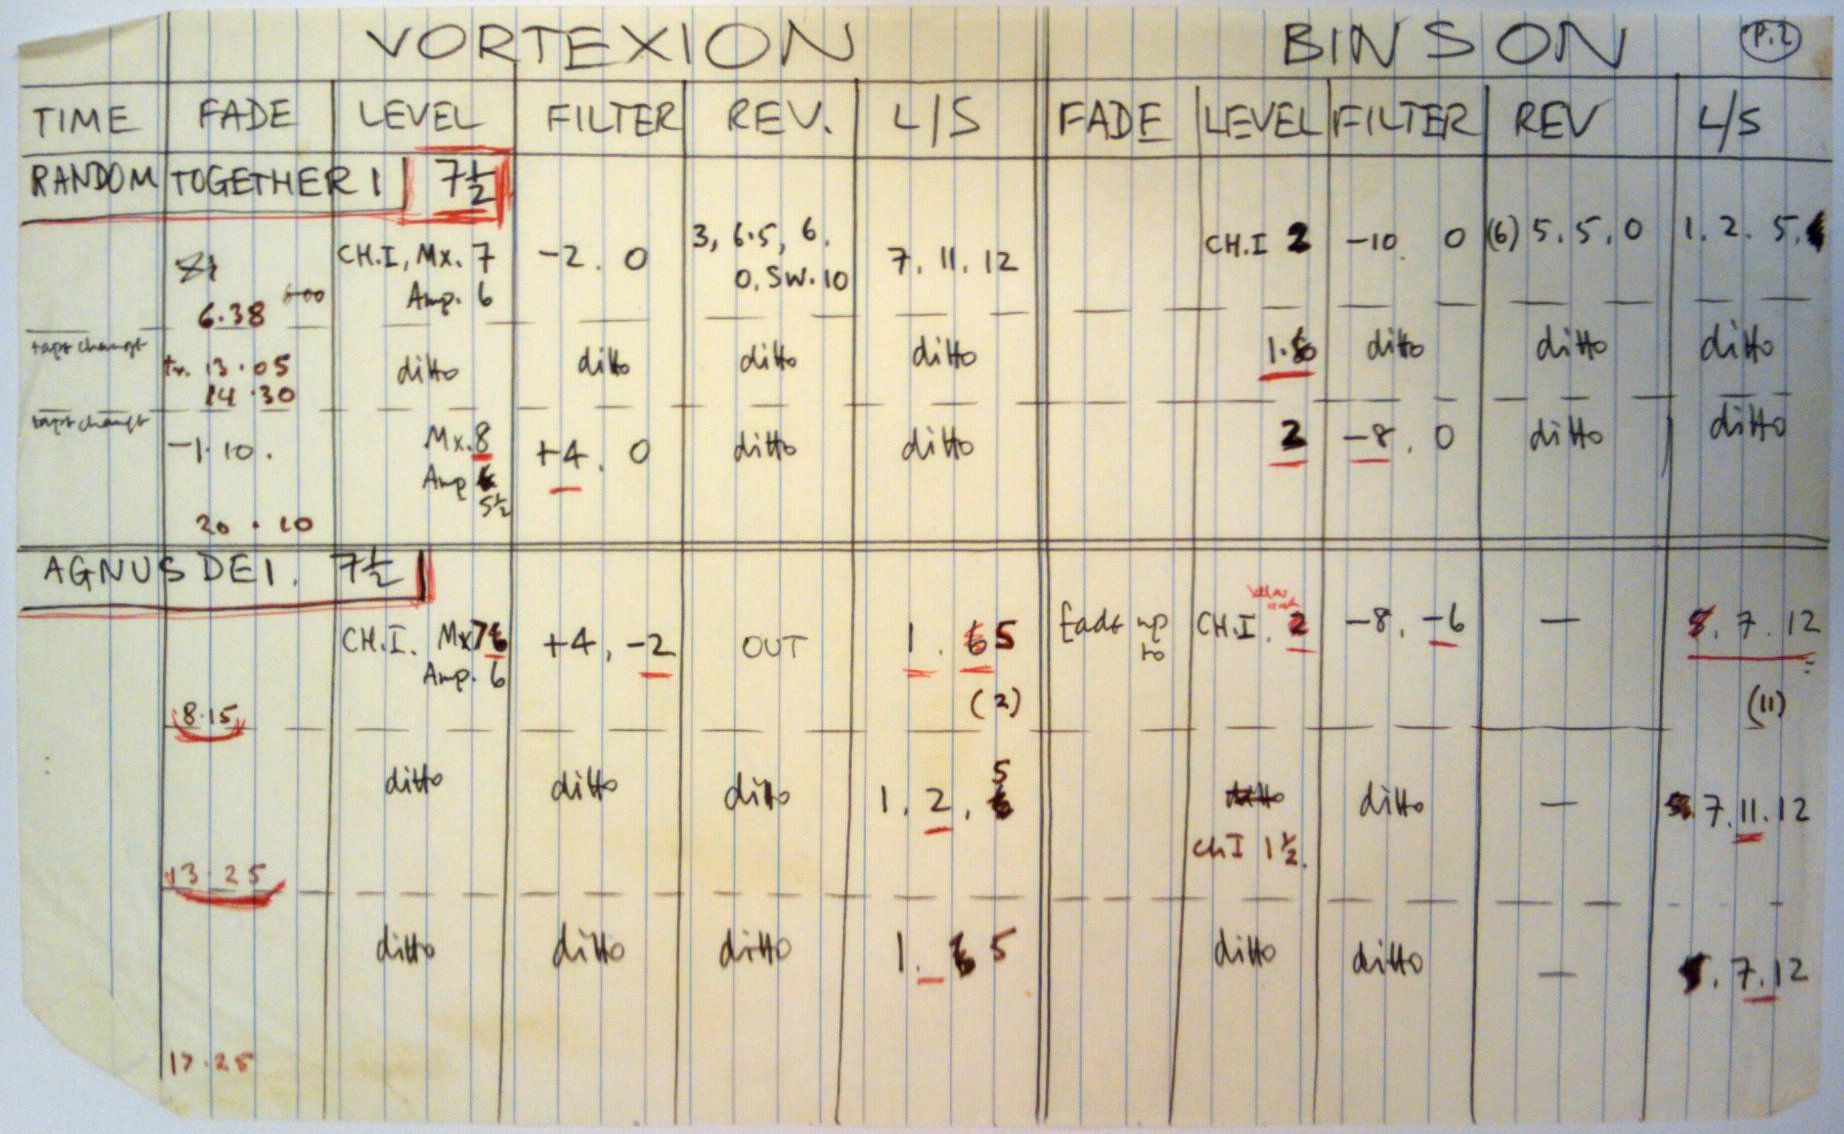 VORTEXION BINSON P.2
TIME FADE LEVEL FILTER REV. L/S FADE LEVEL FILTER REV L/S
RANDOM TOGETHER 1 7½
CH.I, Mx. 7 -2. 0 3, 6.5, 6. 7. 11. 12 CH.I 2 -10. 0 (6) 5. 5. 0 1. 2. 5.
Amp. 6 0. SW. 10
6.38
tape change
13.05 ditto ditto ditto ditto 1. ditto ditto ditto
14.30
tape change
-1.10. Mx. 8 +4. 0 ditto ditto 2 -8. 0 ditto ditto
Amp
5½
20.10
AGNUS DEI. 7½
CH.I. Mx 7 +4, -2 OUT 1. 5 fade up CH.I. 2 -8. -6 — 7. 12
Amp. 6 to
8.15 (2) (11)
5
ditto ditto ditto 1. 2. ditto ditto — 7. 11. 12
ch I 1½.
13.25
ditto ditto ditto 1. 5 ditto ditto — 7. 12
17.25